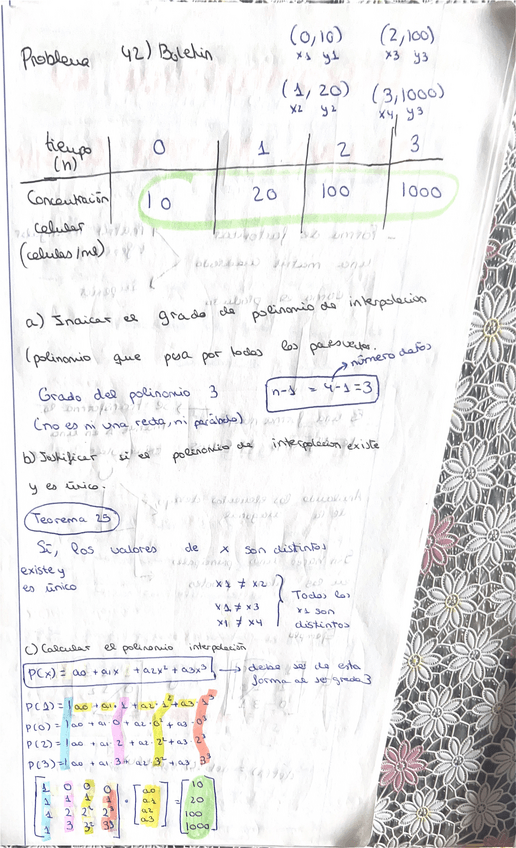 Problema 42) Boletín
(0,10) (2,100)
x1 y1 x3 y3
(1, 20) (3,1000)
x2 y2 x4 y3
tiempo (n) 0 1 2 3
Concentración 10 20 100 1000
celular
(celulas/ml)
a) Inaicar el grado de polinomio de interpolacion
(polinomio que pasa por todos los
número datos
Grado del polinomio 3 n-1 = 4-1=3
(no es ni una recta, ni parábola)
b) Justificar si el polinomio de interpolacion existe
y es único.
Teorema 25
Sí, los valores de x son distintos
existe y
es único
x1 ≠ x2
x1 ≠ x3
x1 ≠ x4
Todos los
x1 son
distintos
c) Calcular el polinomio interpolación
P(x) = a0 + a1x + a2x² + a3x³ → debe ser de esta
forma al ser grado 3
P(1) = 1a0 + a1·1 + a2·1² + a3·1³
P(0) = 1a0 + a1·0 + a2·0² + a3·0³
P(2) = 1a0 + a1·2 + a2·2² + a3·2³
P(3) = 1a0 + a1·3 + a2·3² + a3·3³
1 0 0 0 a0 10
1 1 1 1 · a1 = 20
1 2 2² 2³ a2 100
1 3 3² 3³ a3 1000